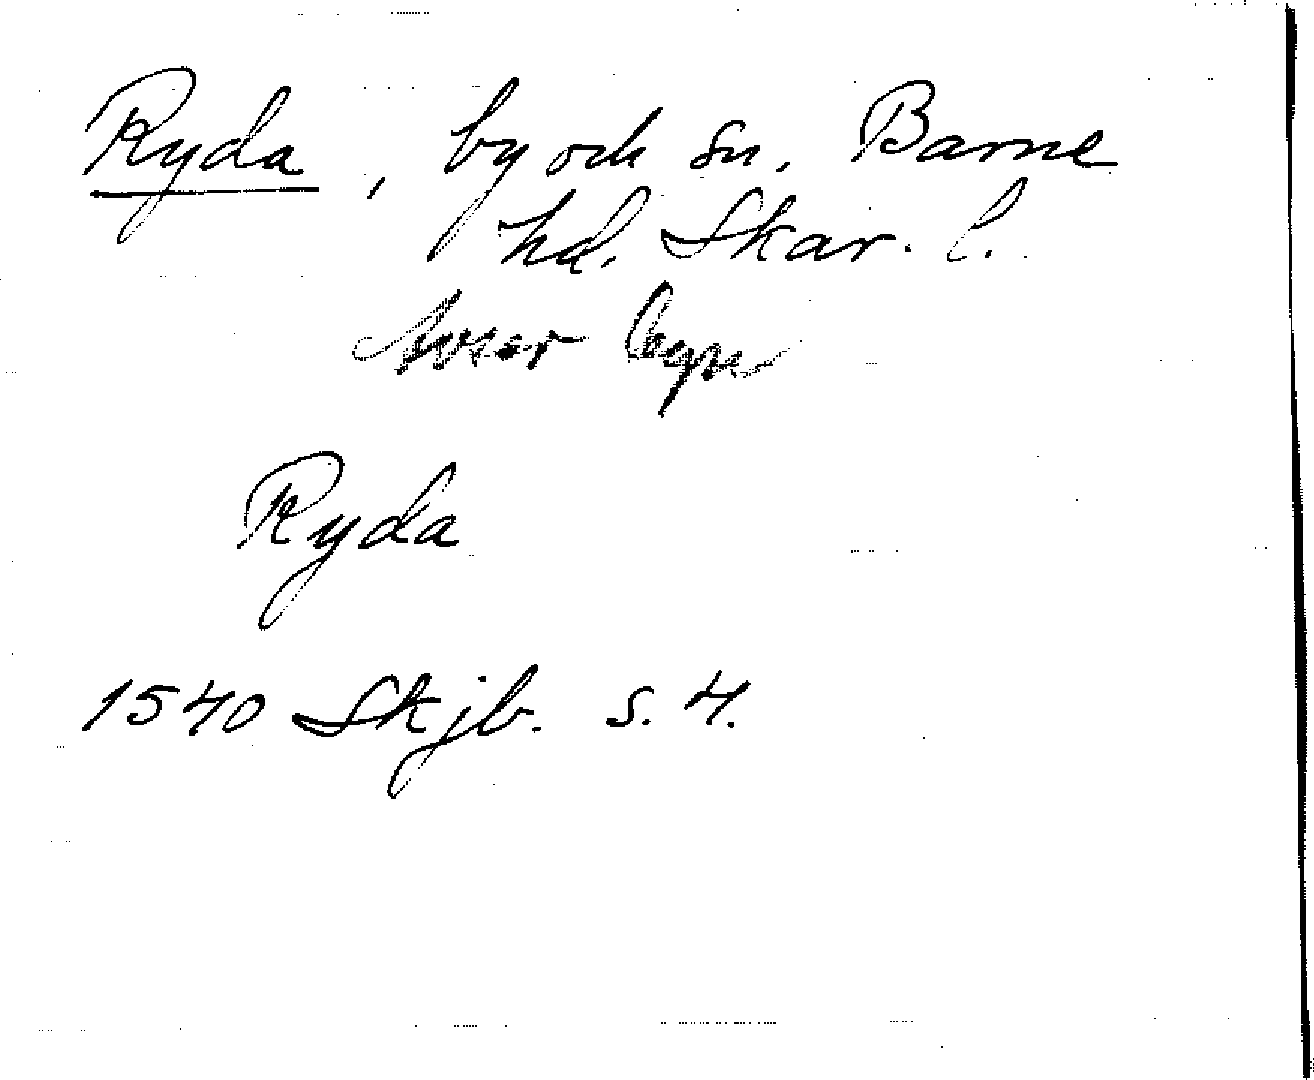 Ryda, by och sn. Barne
hd. Skar. l.
avser byn
Ryda
1540 Skjb. s. 4.